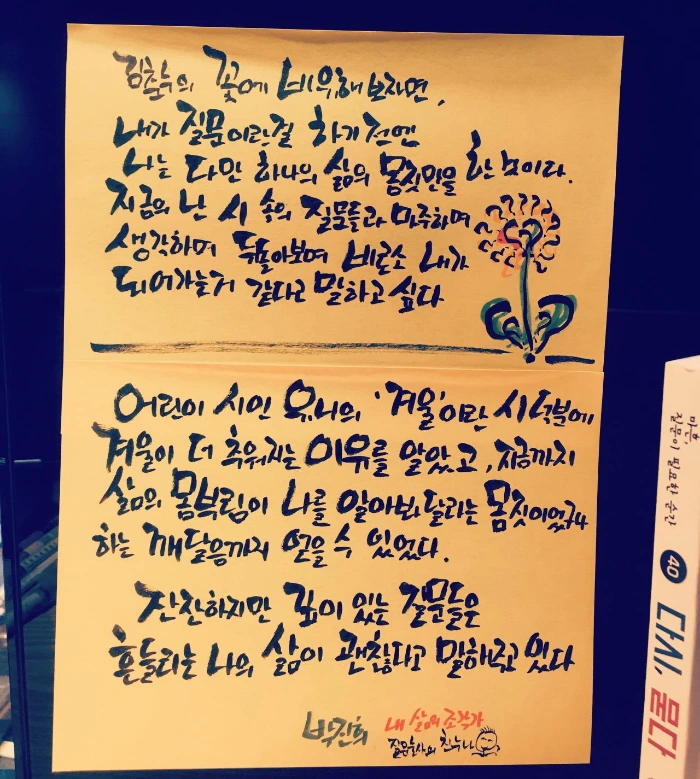 김춘수의 꽃에 비유해보자면,
내가 질문이란걸 하기전엔
나는 다만 하나의 삶의 몸짓만을 한 것이다.
지금의 난 시 속의 질문들과 마주하며
생각하며 뒤돌아보며 비로소 내가
되어가는거 같다고 말하고 싶다
어린이 시인 유니의 '겨울'이란 시 덕분에
겨울이 더 추워지는 이유를 알았고, 지금까지
삶의 몸부림이 나를 알아봐 달라는 몸짓이었구나
하는 깨달음까지 얻을 수 있었다.
잔잔하지만 깊이 있는 질문들은
흔들리는 나의 삶이 괜찮다고 말해주고 있다
박진희 내 삶의 조각가
질문술사의 친누나
마흔
질문이 필요한 순간
40 다시, 묻다